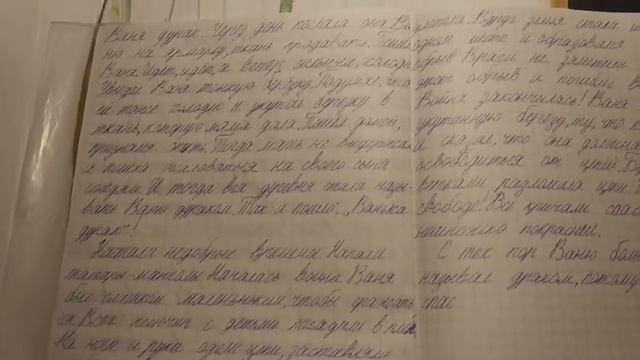 Ваня дурак. Через день послала она Ва-
ню на ярмарку, ткань продавать. Пошёл
Ваня. Идёт, идёт, а ветер сильный, холодн
Увидел Ваня тонкую берёзку. Подумал, что
ей тоже холодно и укутал берёзку в
ткань, которую мама дала. Пришёл домой,
Тогда мать не выдержала
и пошла жаловаться на своего сына
соседям. И тогда вся деревня стала назы-
вать Ваню дураком. Так и пошло: „Ванька
дурак"!
Настали недобрые времена. Напали
татары-монголы. Началась война. Ваня
был слишком маленьким, чтобы сражать
ся. Всех женщин с детьми посадили в плен.
На ноги и руки одели цепи, заставляли
Вдруг земля стала
одном месте и образовался
обрыв. Враги не заметили
этот обрыв и погибли в
Война закончилась! Ваня
укутанную берёзу, ту, что
и сказал, что она должна
освободиться от цепей.
ветками разломила цепи
свободе! Все кричали спас
немножко покраснел.
С тех пор Ваню боль
называл дураком, потому
спас